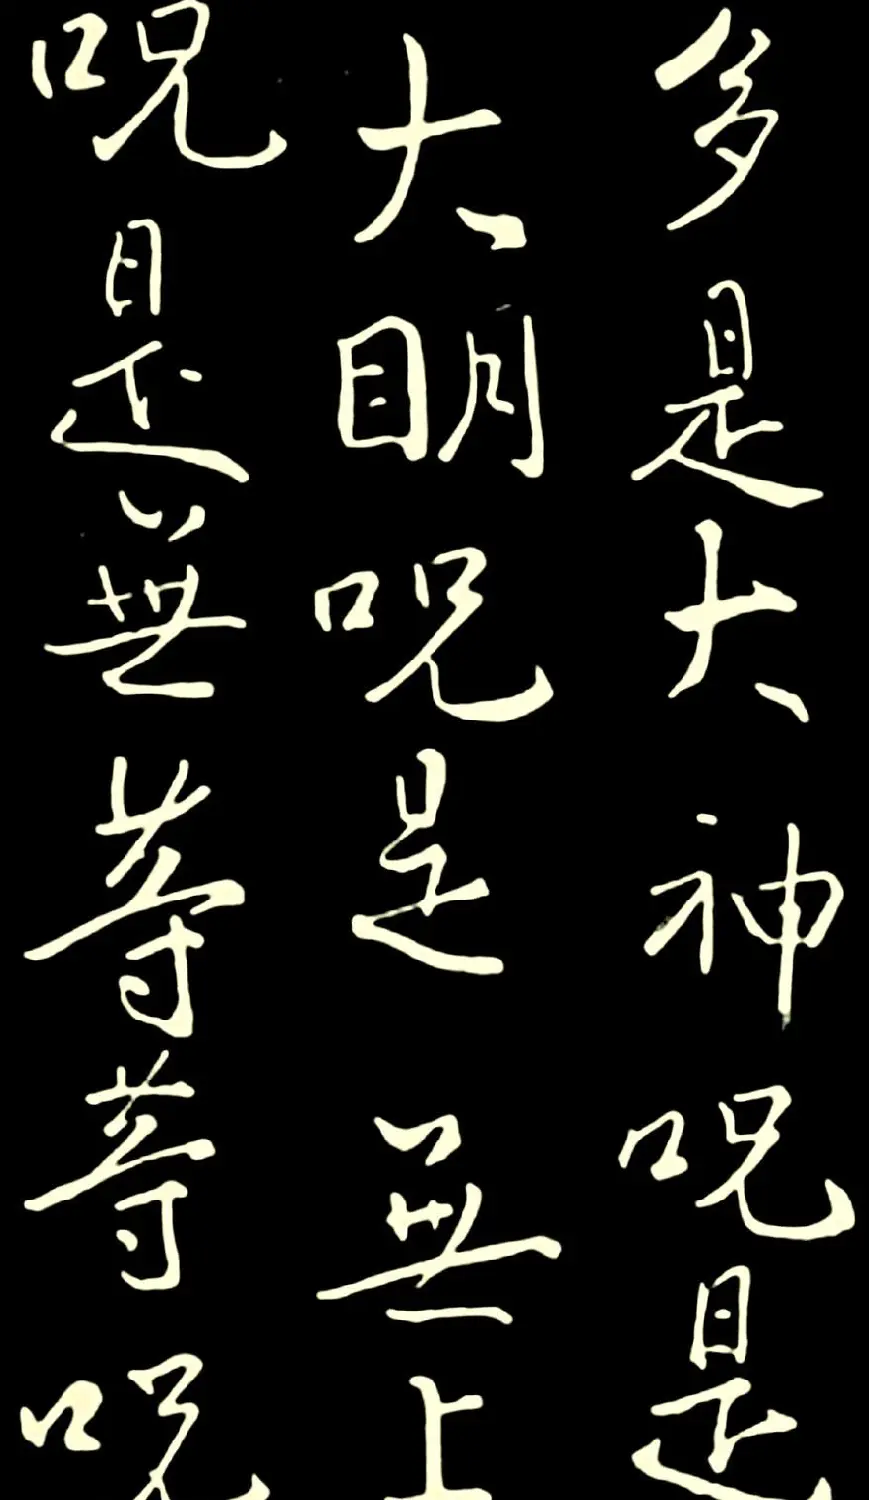 多是大神呪是
大明呪是無上
呪是無等等呪